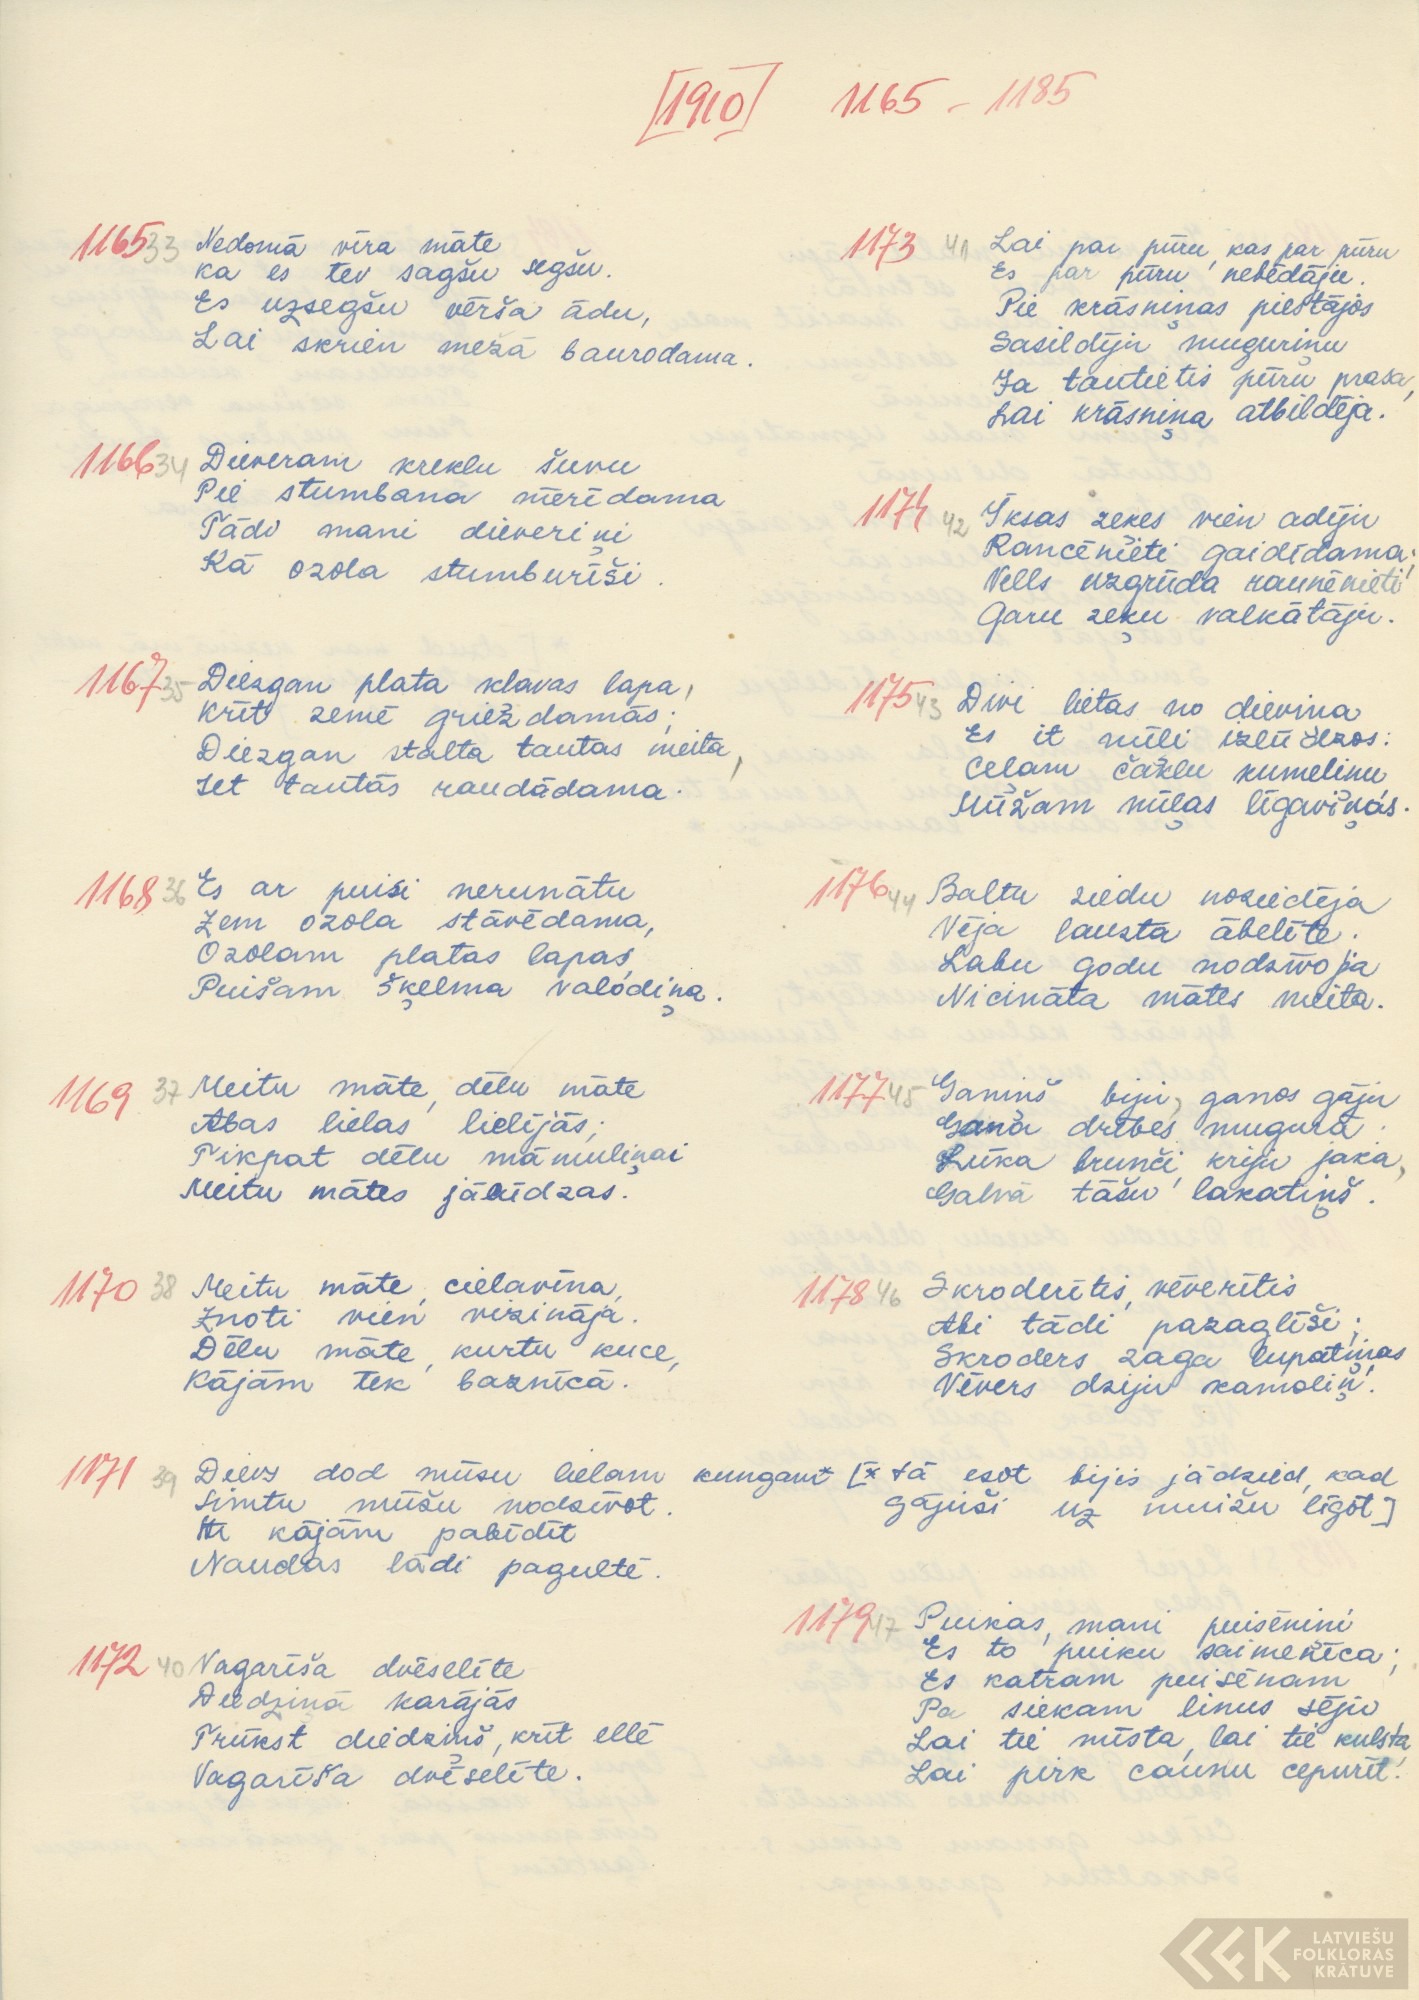 [1910] 1165 - 1185
1165 33 Nedomā vīra māte
ka es tev sagšu segšu.
Es uzsegšu vērša ādu,
Lai skrien mežā baurodama.
1166 34 Dieveram kreklu šuvu
Pie stumbana mērīdama
Tādi mani dieveriņi
Kā ozola stumburīši.
1167 35 Diezgan plata kļavas lapa,
Krīt zemē griezdamās;
Diezgan stalta tautas meita,
Iet tautās raudādama.
1168 36 Es ar puisi nerunātu
Zem ozola stāvēdama,
Ozolam platas lapas,
Puišam šķelma valodiņa.
1169 37 Meitu māte, dēlu māte
Abas lielas lielījās;
Tikpat dēlu māmuliņai
Meitu mātes jālīdzas.
1170 38 Meitu māte, cielaviņa,
Znoti vien vizināja.
Dēlu māte, kurtu kuce,
Kājām tek baznīcā.
1171 39 Dievs dod mūsu lielam kungam* [* tā esot bijis jādzied, kad
gājuši uz muižu līgot]
Simtu mūžu nodzīvot.
Ar kājām pabīdīt
Naudas lādi pagultē.
1172 40 Vagarīša dvēselīte
Diedziņā karājās
Trūkst diedziņš, krīt ellē
Vagarīša dvēselīte.
1173 41 Lai par pūru, kas par pūru
Es par pūru nebēdāju.
Pie krāsniņas piestājos
Sasildīju muguriņu
Ja tautietis pūru prasa,
Lai krāsniņa atbildēja.
1174 42 Īksas zeķes vien adīju
Rancēnieti gaidīdama;
Vells uzgrūda raunēnieti
Garu zeķu valkātāju.
1175 43 Divi lietas no dieviņa
Es it mīļi izlūdzos:
Ceļam čaklu kumeliņu
Mūžam mīļas līgaviņas.
1176 44 Baltu ziedu noziedēja
Vēja lauzta ābelīte.
Labu godu nodzīvoja
Nicināta mātes meita.
1177 45 Ganiņš biju, ganos gāju
Gana drēbes mugurā.
Lūka brunči, kriju jaka,
Galvā tāšu lakatiņš.
1178 46 Skroderītis, vēverītis
Abi tādi pazaglīši;
Skroders zaga lupatiņas
Vēvers dziju kamoliņ'.
1179 47 Puikas, mani puisēniņi
Es to puiku saimenīca;
Es katram puisēnam
Pa siekam linus sēju
Lai tie mīsta, lai tie kulsta,
Lai pirk cauņu cepurīt.
LATVIEŠU
FOLKLORAS
KRĀTUVE